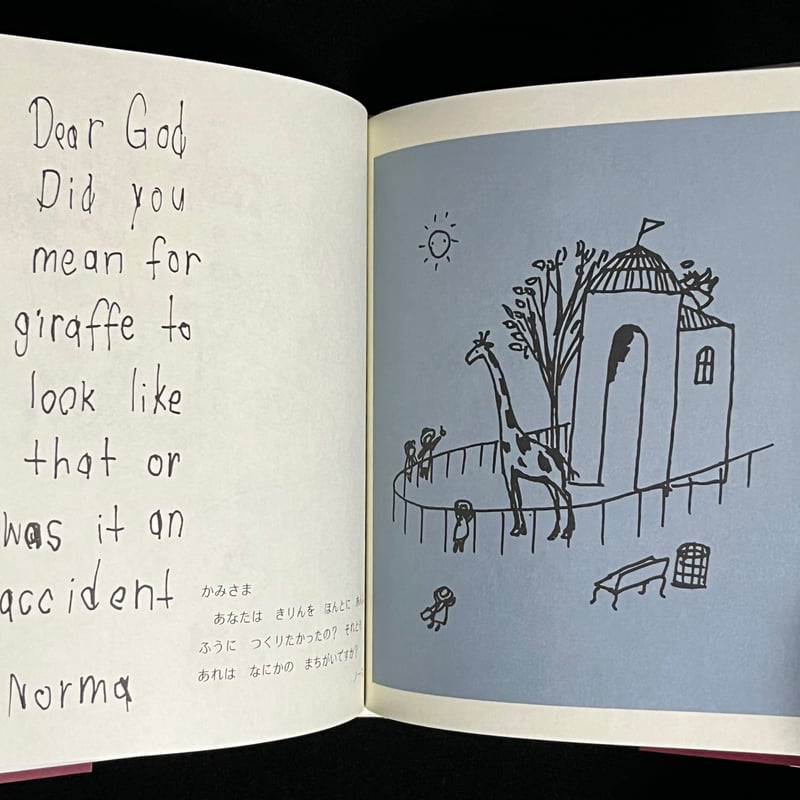 Dear God
Did you
mean for
giraffe to
look like
that or
was it an
accident
Norma
かみさま
あなたは きりんを ほんとに
ふうに つくりたかったの? それとも
あれは なにかの まちがいですか?